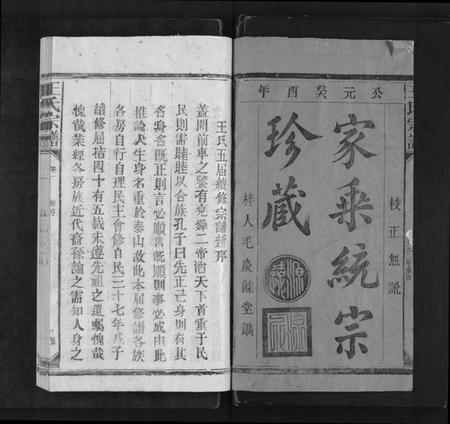 公元癸酉年
校正無訛
家乘統宗
珍藏
梓人毛慶餘堂鐫
王氏宗譜
王氏五屆續修宗譜新序
蓋聞前車之鑒有堯舜二帝治天下首重于民
民則需睦睦以合族孔子曰先正己身則有其
名身名既正則言必順言既順則事必成由此
推論人生身名重於泰山故此本屆修譜各族
各房自行自理民主會修自民三十七年戊子
續修屆指四十有五載未遵先祖之遺囑愧哉
愧哉業經各房族近代裔孫論之需知人身之